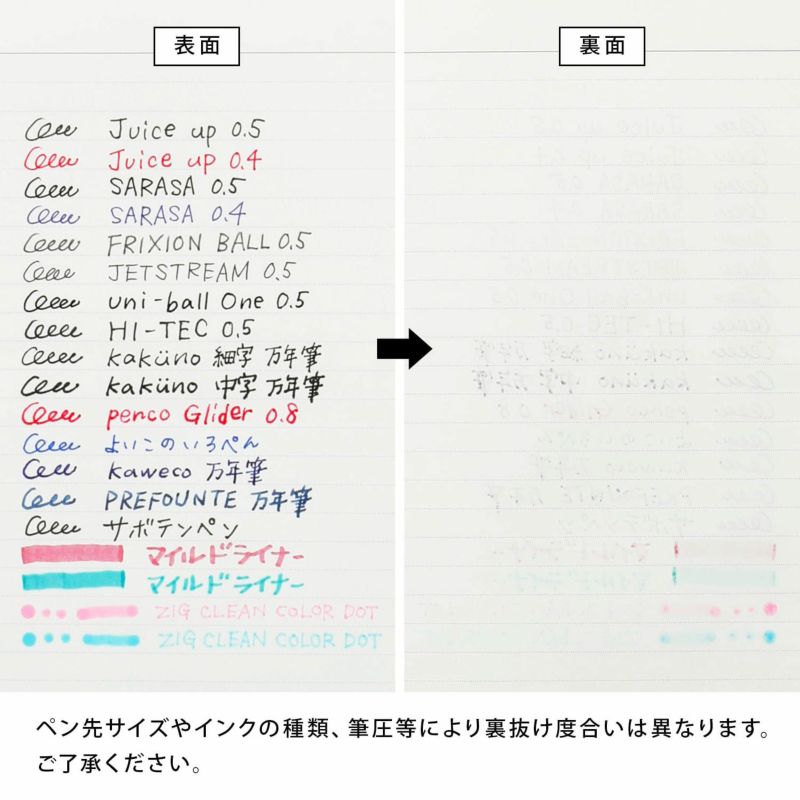 表面
裏面
Juice up 0.5
Juice up 0.4
SARASA 0.5
SARASA 0.4
FRIXION BALL 0.5
JETSTREAM 0.5
uni-ball One 0.5
HI-TEC 0.5
kaküno 細字 万年筆
kaküno 中字 万年筆
penco Glider 0.8
よいこのいろぺん
kaweco 万年筆
PREFOUNTE 万年筆
サボテンペン
マイルドライナー
マイルドライナー
ZIG CLEAN COLOR DOT
ZIG CLEAN COLOR DOT
ペン先サイズやインクの種類、筆圧等により裏抜け度合いは異なります。
ご了承ください。